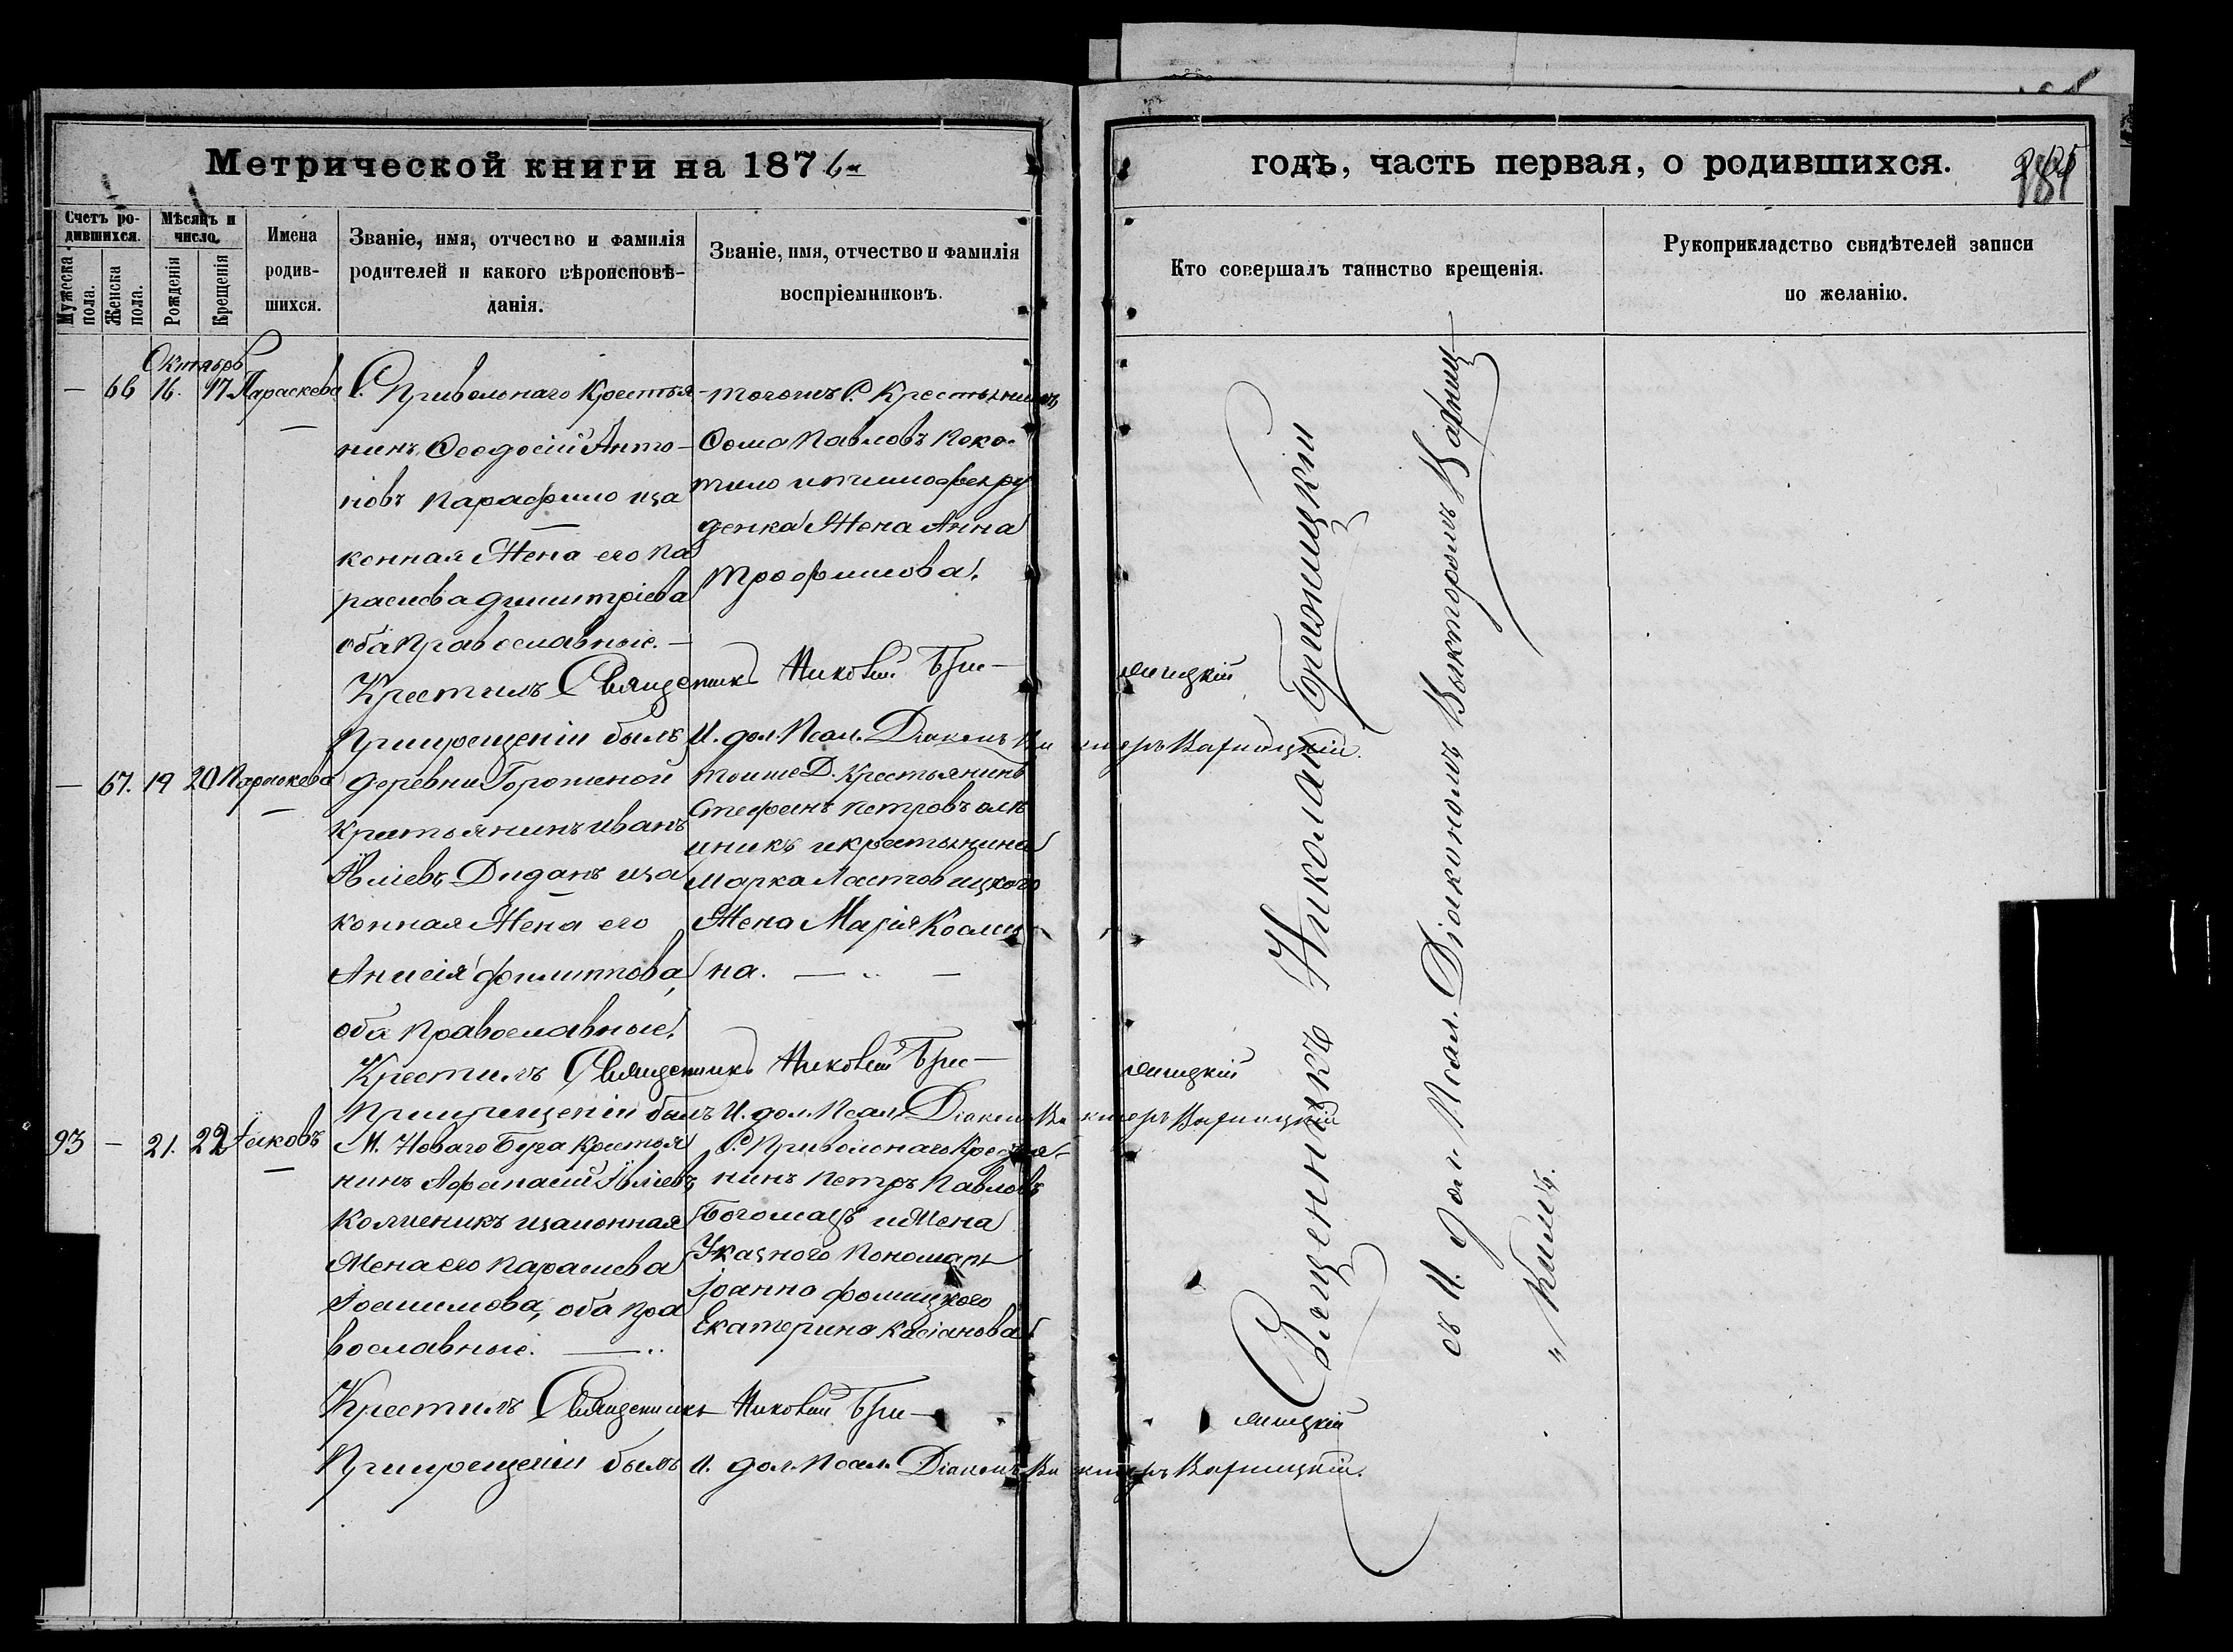 Метрической книги на 1876
годъ, часть первая, о родившихся.
Счетъ ро-
дившихся.
Мѣсяцъ и
число.
Мужеска
пола.
Женска
пола.
Рожденія
Крещенія
Имена
родив-
шихся.
Званіе, имя, отчество и фамилія
родителей и какого вѣроисповѣ-
данія.
Званіе, имя, отчество и фамилія
воспріемниковъ.
Кто совершалъ таинство крещенія.
Рукоприкладство свидѣтелей записи
по желанію.
Октябрь
— 66 16. 17. Параскева
С. Привольнаго Крестья-
нинъ Ѳеодосій Анто-
новъ и за
конная Жена его Па
раскева Димитріева
оба Православные. —
тогоже С. Крестьянинъ
Ѳома Павловъ Коко-
тило и Тимофея Ру
денка Жена Анна
Трофимова.
Крестилъ Священникъ Николай
При крещеніи былъ И. дол. Псал. Діаконъ Викторъ Варницкій.
— 67. 19 20 Параскева
Деревни Горожаной
Крестьянинъ Иванъ
Дидан и за
конная Жена его
Анисія Филиппова,
оба Православные.
тойже Д. Крестьянинъ
Стефанъ Петровъ Олѣ
йникъ и крестьянина
Марка Ластовицкого
Жена Марія Косми
на. —
Крестилъ Священникъ Николай
При крещеніи былъ И. дол. Псал. Діаконъ Викторъ Варницкій
93 — 21. 22 Іаковъ
М. Новаго Буга Крестья
нинъ Афанасій
Колченикъ и законная
Жена его Параскева
Іоакимова, оба пра
вославные. —
С. Привольнаго Крестья-
нинъ Петръ Павловъ
Богомазъ и Жена
Указного Пономаря
Іоанна Фомицкого
Екатерина Касіанова
Крестилъ Священникъ Николай
При крещеніи былъ И. дол. Псал. Діаконъ Викторъ Варницкій.
Священникъ Николай
съ И. дол. Псал. Діакономъ Викторомъ Варниц-
кимъ.